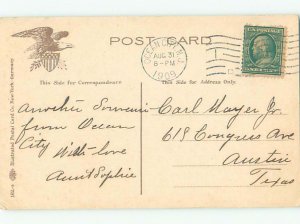 POST CARD
This Side for Correspondence
This Side for Address Only.
OCEAN CITY, N.J.
AUG 31
6-PM
1909
U.S. POSTAGE
Another Souvenir
from Ocean
City With love
Aunt Sophie
Carl Mayer Jr.
619 Congress Ave
Austin
Texas
Illustrated Postal Card Co., New York-Germany